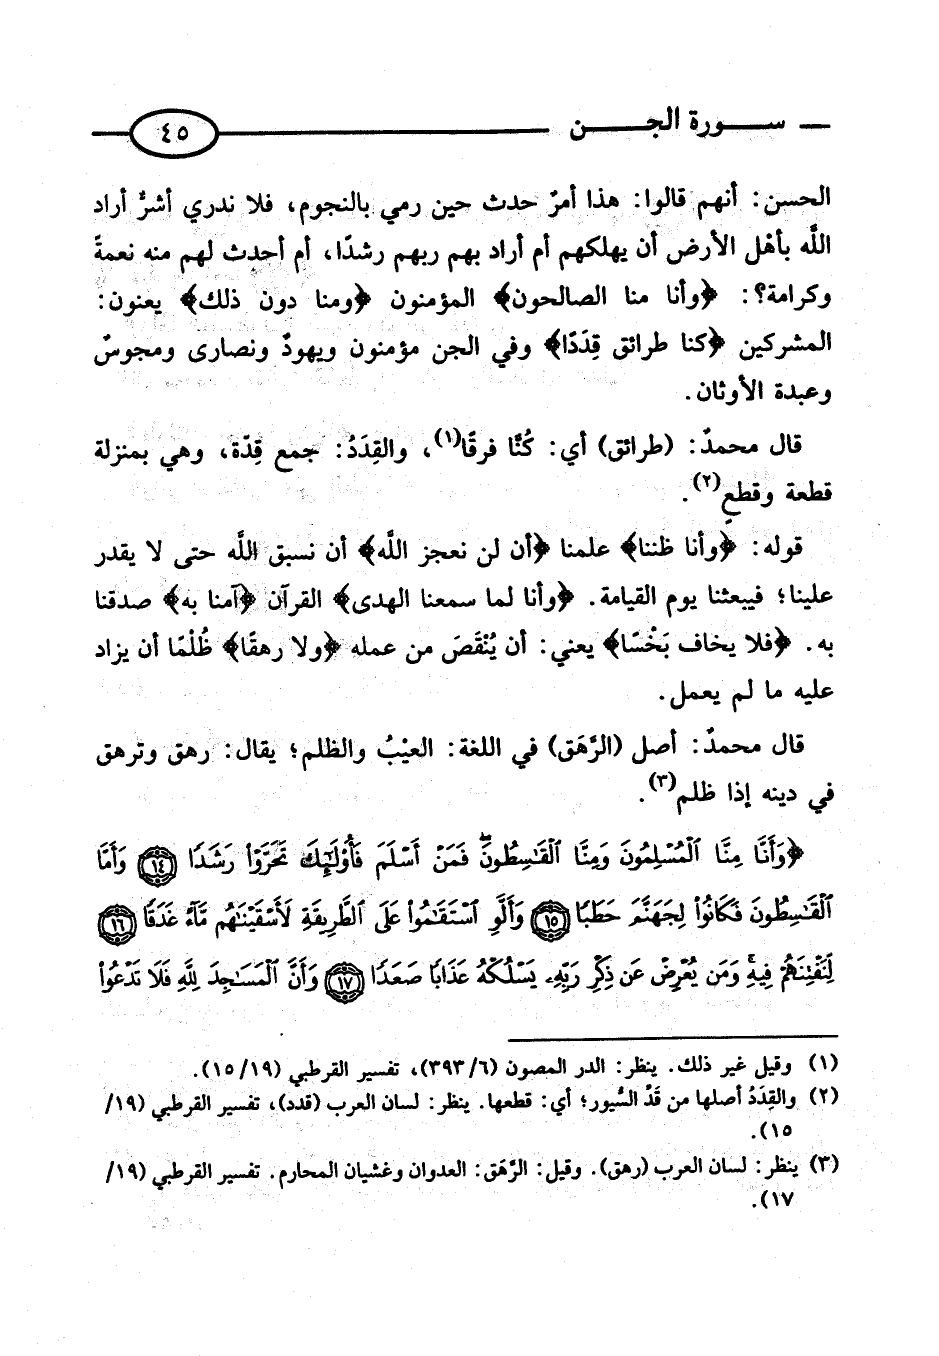 سورة الجن
٤٥
الحسن: أنهم قالوا: هذا أمرٌ حدث حين رمي بالنجوم، فلا ندري أشرٌّ أراد
اللَّه بأهْل الأرض أن يهلكهم أم أراد بهم ربهم رشدًا، أم أحدث لهم منه نعمةً
وكرامة؟: ﴿وأنا منا الصالحون﴾ المؤمنون ﴿ومنا دون ذلك﴾ يعنون:
المشركين ﴿كنا طرائق قِدَدًا﴾ وفي الجن مؤمنون ويهودٌ ونصارى ومجوسٌ
وعبدة الأوثان.
قال محمدٌ: (طرائق) أي: كُنَّا فرقًا(١)، والقِدَدُ: جمع قِدّة، وهي بمنزلة
قطعة وقطعٍ(٢).
قوله: ﴿وأنا ظننا﴾ علمنا ﴿أن لن نعجز اللَّه﴾ أن نسبق اللَّه حتى لا يقدر
علينا؛ فيبعثنا يوم القيامة. ﴿وأنا لما سمعنا الهدى﴾ القرآن ﴿آمنا به﴾ صدقنا
به. ﴿فلا يخاف بَخْسًا﴾ يعني: أن يُنْقَصَ من عمله ﴿ولا رهقًا﴾ ظُلْمًا أن يزاد
عليه ما لم يعمل.
قال محمدٌ: أصل (الرَّهَق) في اللغة: العيْبُ والظلم؛ يقال: رهق وترهق
في دينه إذا ظلم(٣).
﴿وَأَنَّا مِنَّا ٱلْمُسْلِمُونَ وَمِنَّا ٱلْقَٰسِطُونَ ۖ فَمَنْ أَسْلَمَ فَأُو۟لَٰٓئِكَ تَحَرَّوْا۟ رَشَدًا ١٤ وَأَمَّا
ٱلْقَٰسِطُونَ فَكَانُوا۟ لِجَهَنَّمَ حَطَبًا ١٥ وَأَلَّوِ ٱسْتَقَٰمُوا۟ عَلَى ٱلطَّرِيقَةِ لَأَسْقَيْنَٰهُم مَّآءً غَدَقًا ١٦
لِّنَفْتِنَهُمْ فِيهِ ۚ وَمَن يُعْرِضْ عَن ذِكْرِ رَبِّهِۦ يَسْلُكْهُ عَذَابًا صَعَدًا ١٧ وَأَنَّ ٱلْمَسَٰجِدَ لِلَّهِ فَلَا تَدْعُوا۟
(١) وقيل غير ذلك. ينظر: الدر المصون (٦/ ٣٩٣)، تفسير القرطبي (١٩/ ١٥).
(٢) والقِدَدُ أصلها من قَدِّ السُّيور؛ أي: قطعها. ينظر: لسان العرب (قدد)، تفسير القرطبي (١٩/
١٥).
(٣) ينظر: لسان العرب (رهق). وقيل: الرَّهَق: العدوان وغشيان المحارم. تفسير القرطبي (١٩/
١٧).